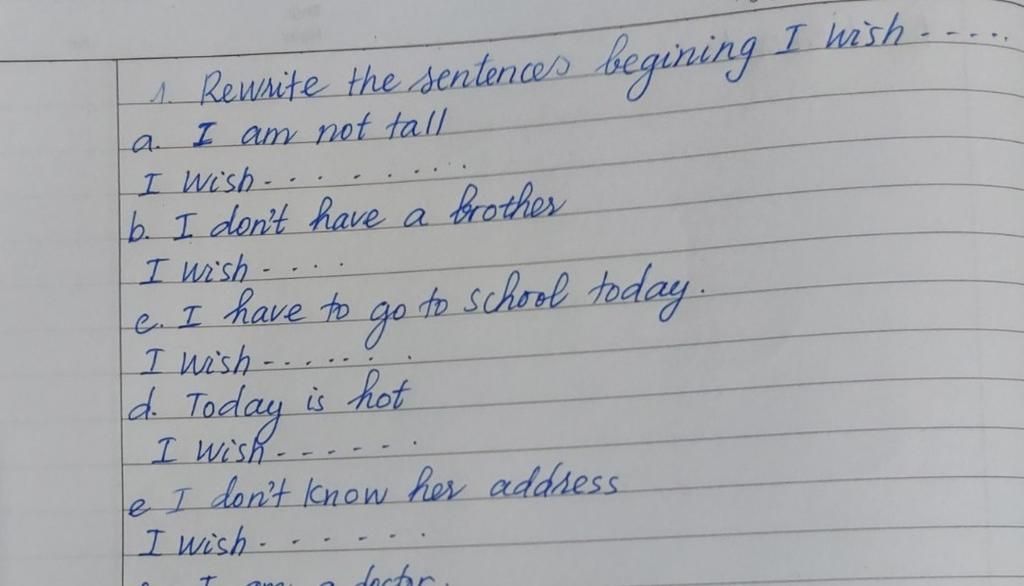 1. Rewrite the sentences begining I wish .....
a. I am not tall
I Wish........
b. I don't have a brother
I wish....
c. I have to go to school today.
I wish.......
d. Today is hot
I wish......
e I don't know her address
I wish.......
I am a doctor.